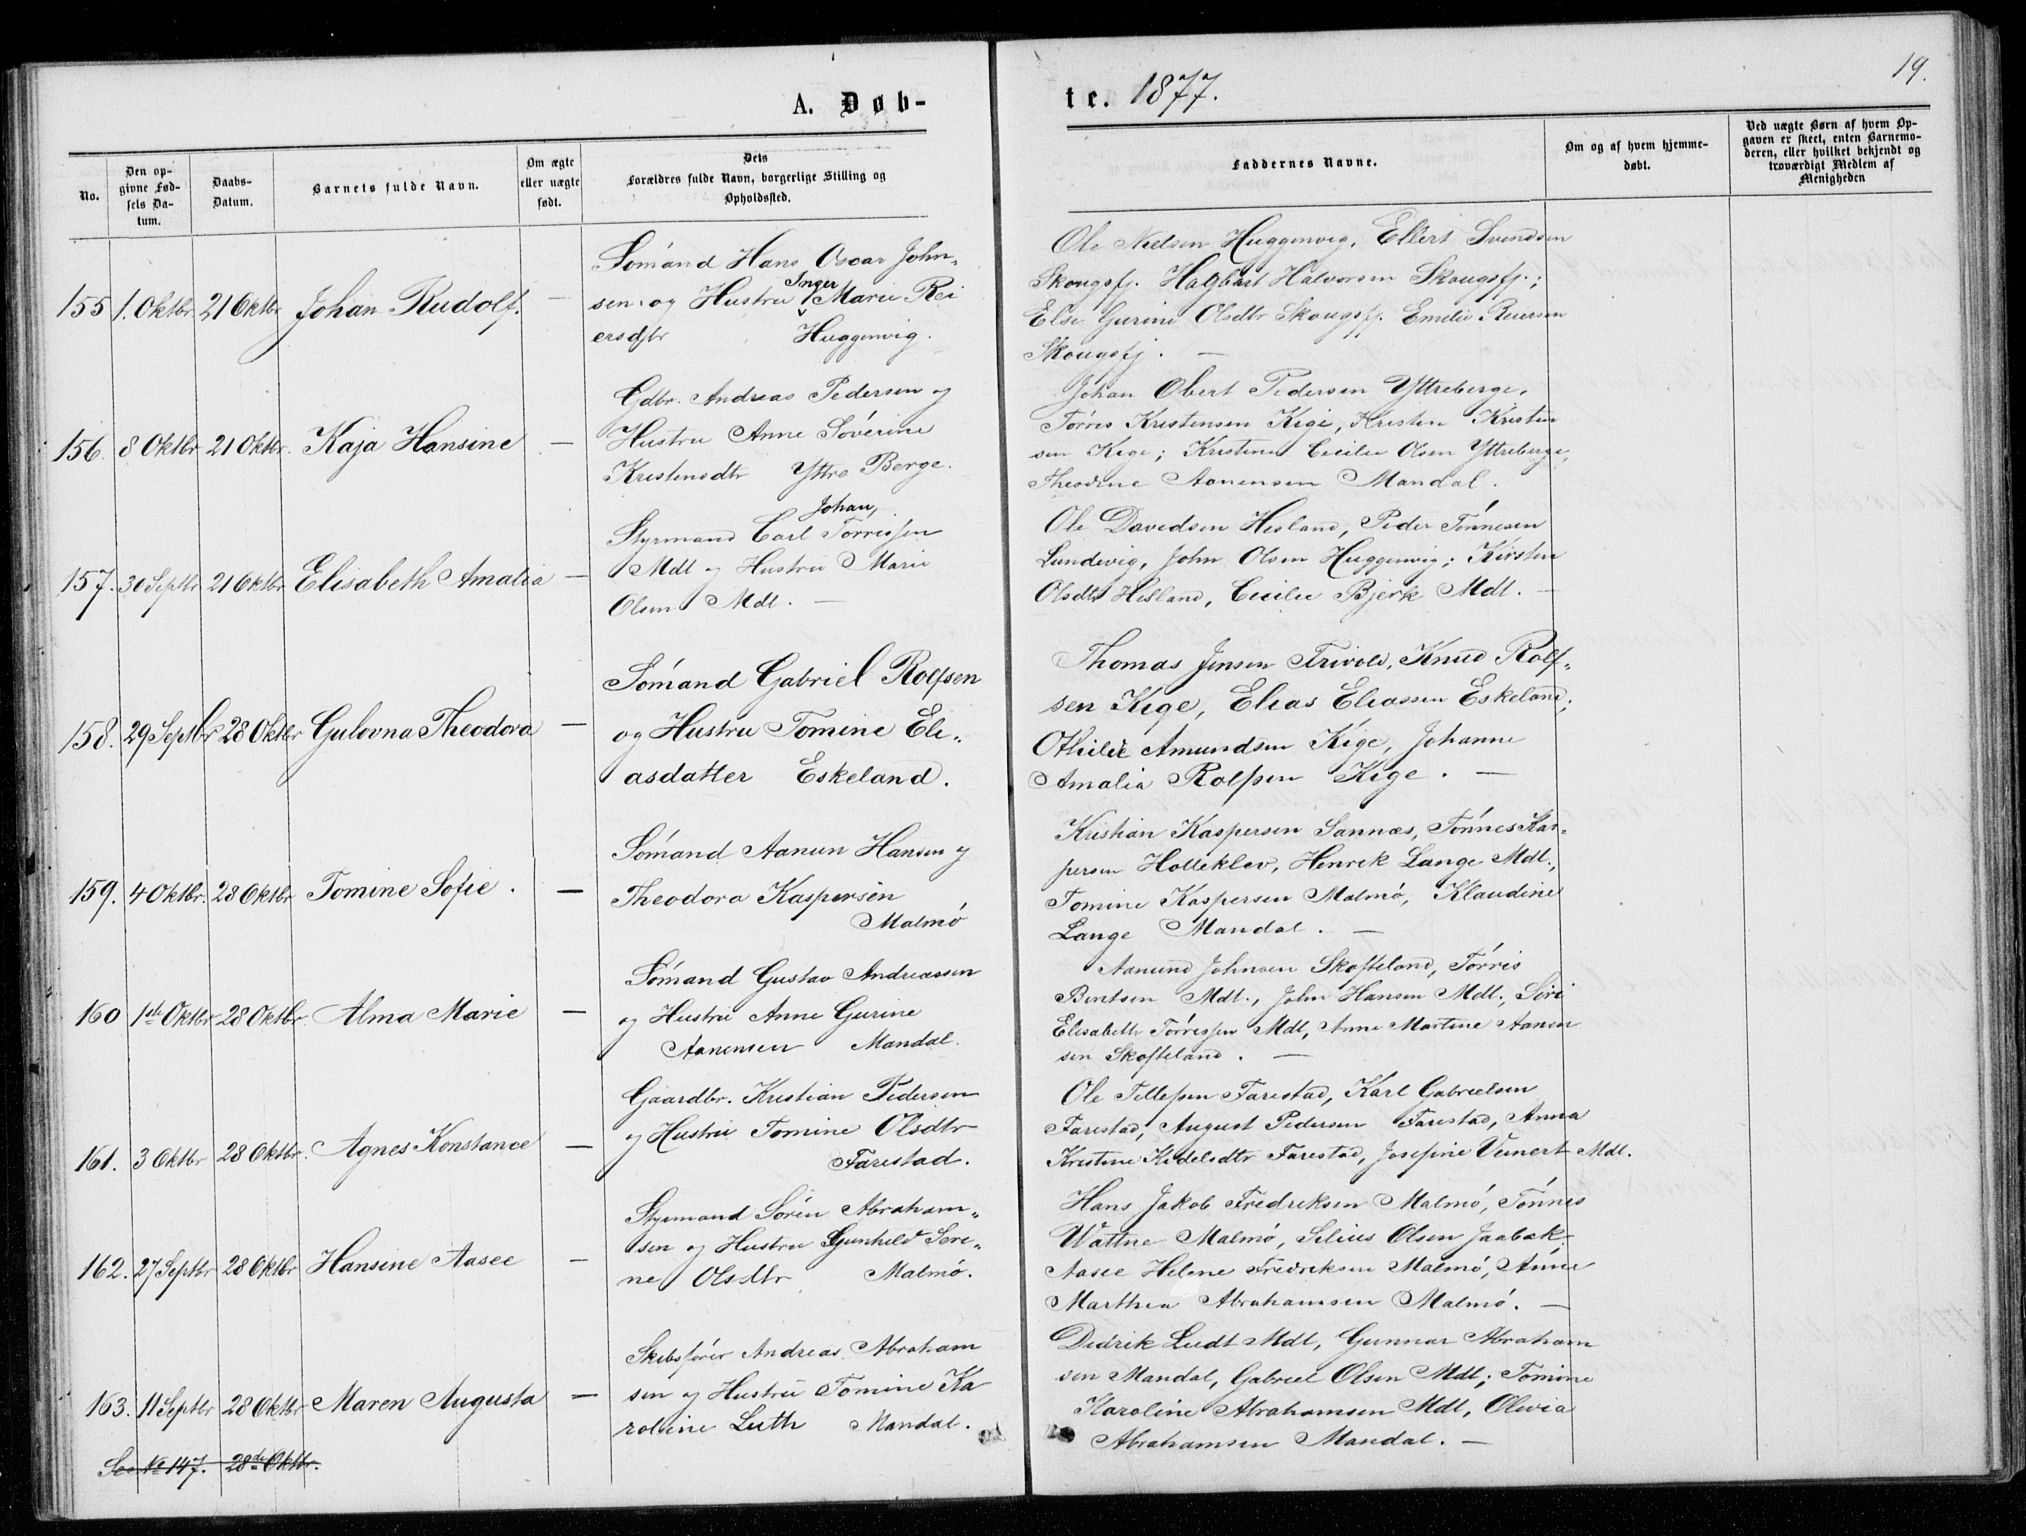 19.
A. Døb-
te. 1877.
No.
Den op-
givne Fød-
sels Da-
tum.
Daabs-
Datum.
Barnets fulde Navn.
Om ægte
eller uægte
født.
Dets
Forældres fulde Navn, borgerlige Stilling og
Opholdssted.
Faddernes Navne.
Om og af hvem hjemme-
døbt.
Ved uægte Børn af hvem Op-
gaven er skeet, enten Barnemo-
deren, eller hvilket bekjendt og
troværdigt Medlem af
Menigheden
155 1. Oktbr 21 Oktbr Johan Rudolf. —
Sømand Hans Oscar John„
sen og Hustru Inger Marie Rei
ersdtr Huggenvig.
Ole Nielsen Huggenvig, Ellert Svendsen
Skougsfj. Hagbart Halvorsen Skougsfj.;
Else Gurine Olsdtr Skougsfj. Emilie Reiersen
Skougsfj. —
156. 8 Oktbr 21 Oktbr. Kaja Hansine —
Gdbr. Andreas Pedersen og
Hustru Anne Søverine
Kristensdtr Yttre Berge.
Johan Obert Pedersen Yttreberge,
Tørris Kristensen Kige, Kristen Kristen
sen Kige; Kristine Cicilie Olsen Yttreberge,
Theodine Aanensen Mandal.
157. 30 Septbr 21 Oktbr Elisabeth Amalia —
Johan,
Styrmand Carl Tørressen
Mdl og Hustru Marie
Olsen Mdl. —
Ole Davidsen Hesland, Peder Tønnesen
Lundevig, John Olsen Huggenvig; Kirsten
Olsdtr Hesland, Cicilie Bjerk Mdl. —
158. 29 Septbr 28 Oktbr Gulovna Theodora —
Sømand Gabriel Rolfsen
og Hustru Tomine Eli„
asdatter Eskeland.
Thomas Jensen Frivold, Knud Rolf„
sen Kige, Elias Eliassen Eskeland;
Othilie Amundsen Kige, Johanne
Amalia Rolfsen Kige. —
159. 4 Oktbr. 28 Oktbr Tomine Sofie. —
Sømand Aanun Hansen og
Theodora Kaspersen
Malmø
Kristian Kaspersen Sannæs, Tønnes Kas-
persen Holleklev, Henrik Lange Mdl.,
Tomine Kaspersen Malmø, Klaudine
Lange Mandal. —
160 1ste Oktbr 28 Oktbr Alma Marie —
Sømand Gustav Andreassen
og Hustru Anne Gurine
Aanensen Mandal.
Aanund Johnsen Skofteland, Tørris
Bentsen Mdl., John Hansen Mdl.; Siri
Elisabeth Tørressen Mdl, Anne Martine Aanen
sen Skofteland. —
161. 3 Oktbr 28 Oktbr. Agnes Konstance —
Gaardbr. Kristian Pedersen
og Hustru Tomine Olsdtr
Farestad.
Ole Tellefsen Farestad, Karl Gabrielsen
Farestad, August Pedersen Farestad, Anna
Kristine Kedelsdtr Farestad, Josefine Veinert Mdl.
162. 27 Septbr 28 Oktbr Hansine Aasee —
Styrmand Søren Abraham„
sen og Hustru Gunhild Seri„
ne Olsdtr Malmø.
Hans Jakob Fredriksen Malmø, Tønnes
Wattne Malmø, Silius Olsen Jaabæk,
Aasee Helene Fredriksen Malmø, Anne
Marthea Abrahamsen Malmø. —
163. 11 Septbr 28 Oktbr Maren Augusta —
Skibsfører Andreas Abraham
sen og Hustru Tomine Ka
roline Luth Mandal.
Didrik Ludt Mdl, Gunnar Abraham
sen Mandal, Gabriel Olsen Mdl; Tomine
Karoline Abrahamsen Mdl, Olivia
Abrahamsen Mandal. —
See No 147. 28de Oktbr.